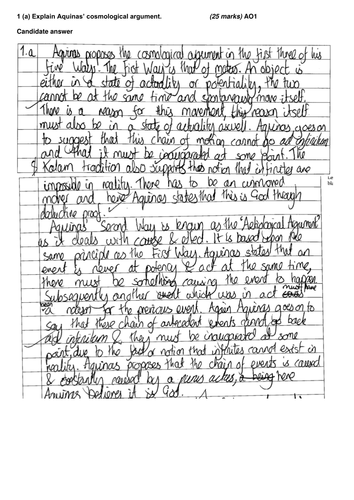 1 (a) Explain Aquinas' cosmological argument. (25 marks) AO1
Candidate answer
1.a Aquinas proposes the cosmological argument in the first three of his
five ways. The first Way is that of motion. An object is
either in a state of actuality or potentiality, the two
cannot be at the same time and spontaneously move itself.
There is a reason for this movement, this reason itself
must also be in a state of actuality aswell. Aquinas goes on
to suggest that this chain of motion cannot go ad infinitum
and that it must be inaugurated at some point. The
Kalam tradition also supports this notion that infinites are
impossible in reality. There has to be an unmoved
mover and here Aquinas states that this is God through
deductive proof.
Aquinas' Second Way is known as the "Aetiological Argument"
as it deals with cause & effect. It is based upon the
same principle as the First Way. Aquinas states that an
event is never at potency & act at the same time,
there must be something causing the event to happen.
Subsequently another event which was in act must have
been a reason for the previous event. Again Aquinas goes on to
say that these chain of antecedent events cannot go back
ad infinitum & they must be inaugurated at some
point, due to the fact or notion that infinites cannot exist in
reality. Aquinas proposes that the chain of events is caused
& constantly caused by a purus actus, a being here
Aquinas believes it is God.